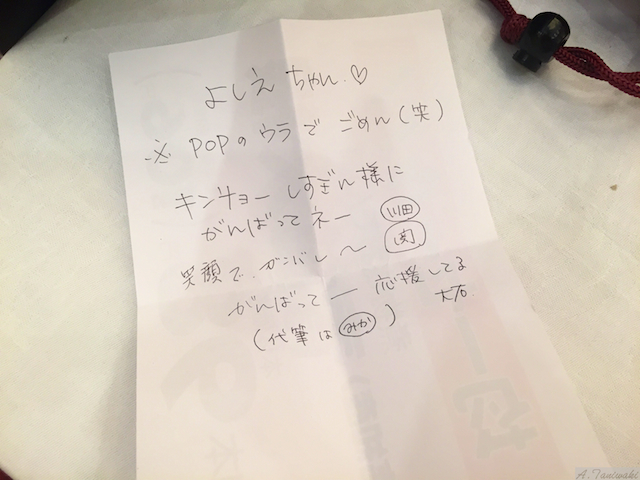 よしえちゃん♡
※ POPのウラで ごめん(笑)
キンチョーしすぎん様に
がんばってネー 川田
笑顔で ガンバレ〜 関
がんばってー 応援してる
大石
(代筆は みか)
A.Taniwaki